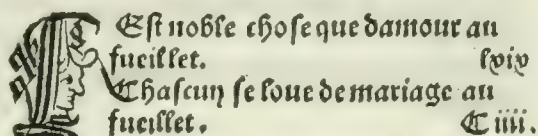 Eſt noble choſe que damour au
fueillet. lxix
Chaſcun ſe loue de mariage au
fueillet. C iiii.